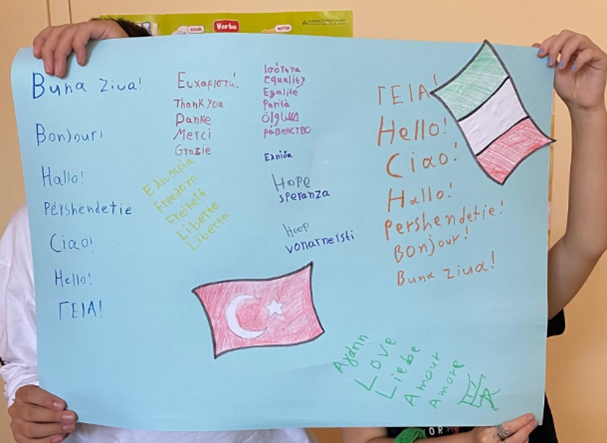 Verbs
Buna Ziua!
Bonjour!
Hallo!
Përshendetie
Ciao!
Hello!
ΓΕΙΑ!
Ευχαριστώ
Thank you
Danke
Merci
Grazie
Ελευθερία
Freedom
Freiheit
Liberte
Liberta
Ισότητα
Equality
Egalité
Parità
равенство
Ελπίδα
Hope
speranza
Hoop
ΓΕΙΑ!
Hello!
Ciao!
Hallo!
Pershendetie!
Bonjour!
Buna ziua!
Αγάπη
Love
Liebe
Amour
Amore